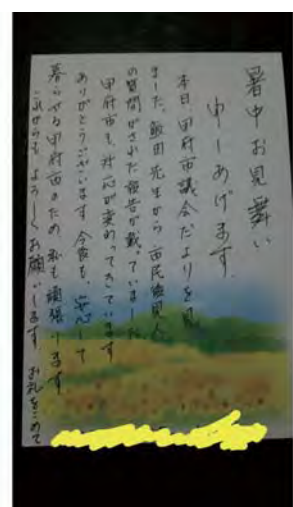 暑中お見舞い
申しあげます
本日、甲府市議会だよりを見
ました。飯田先生から市民後見人
の質問がされた報告が載っていました
甲府市も対応が変わってきています
ありがとうございます。今後も、安心して
暮らせる甲府市のため、私も頑張ります
これからもよろしくお願いします お礼をこめて